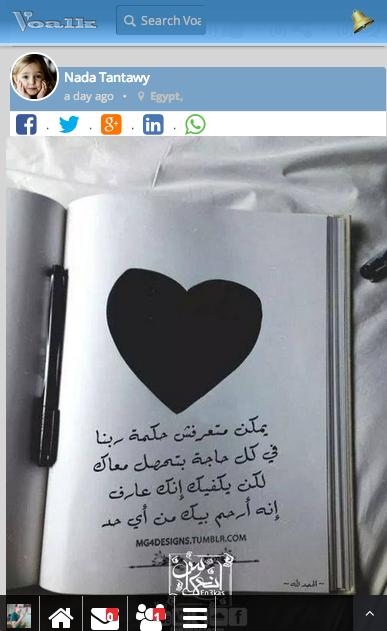 Voallz
Search Voa
Nada Tantawy
a day ago • Egypt,
يمكن متعرفش حكمة ربنا
في كل حاجة بتحصل معاك
لكن يكفيك إنك عارف
إنه أرحم بيك من أي حد
MG4DESIGNS.TUMBLR.COM
En3kas
~الحمد لله~